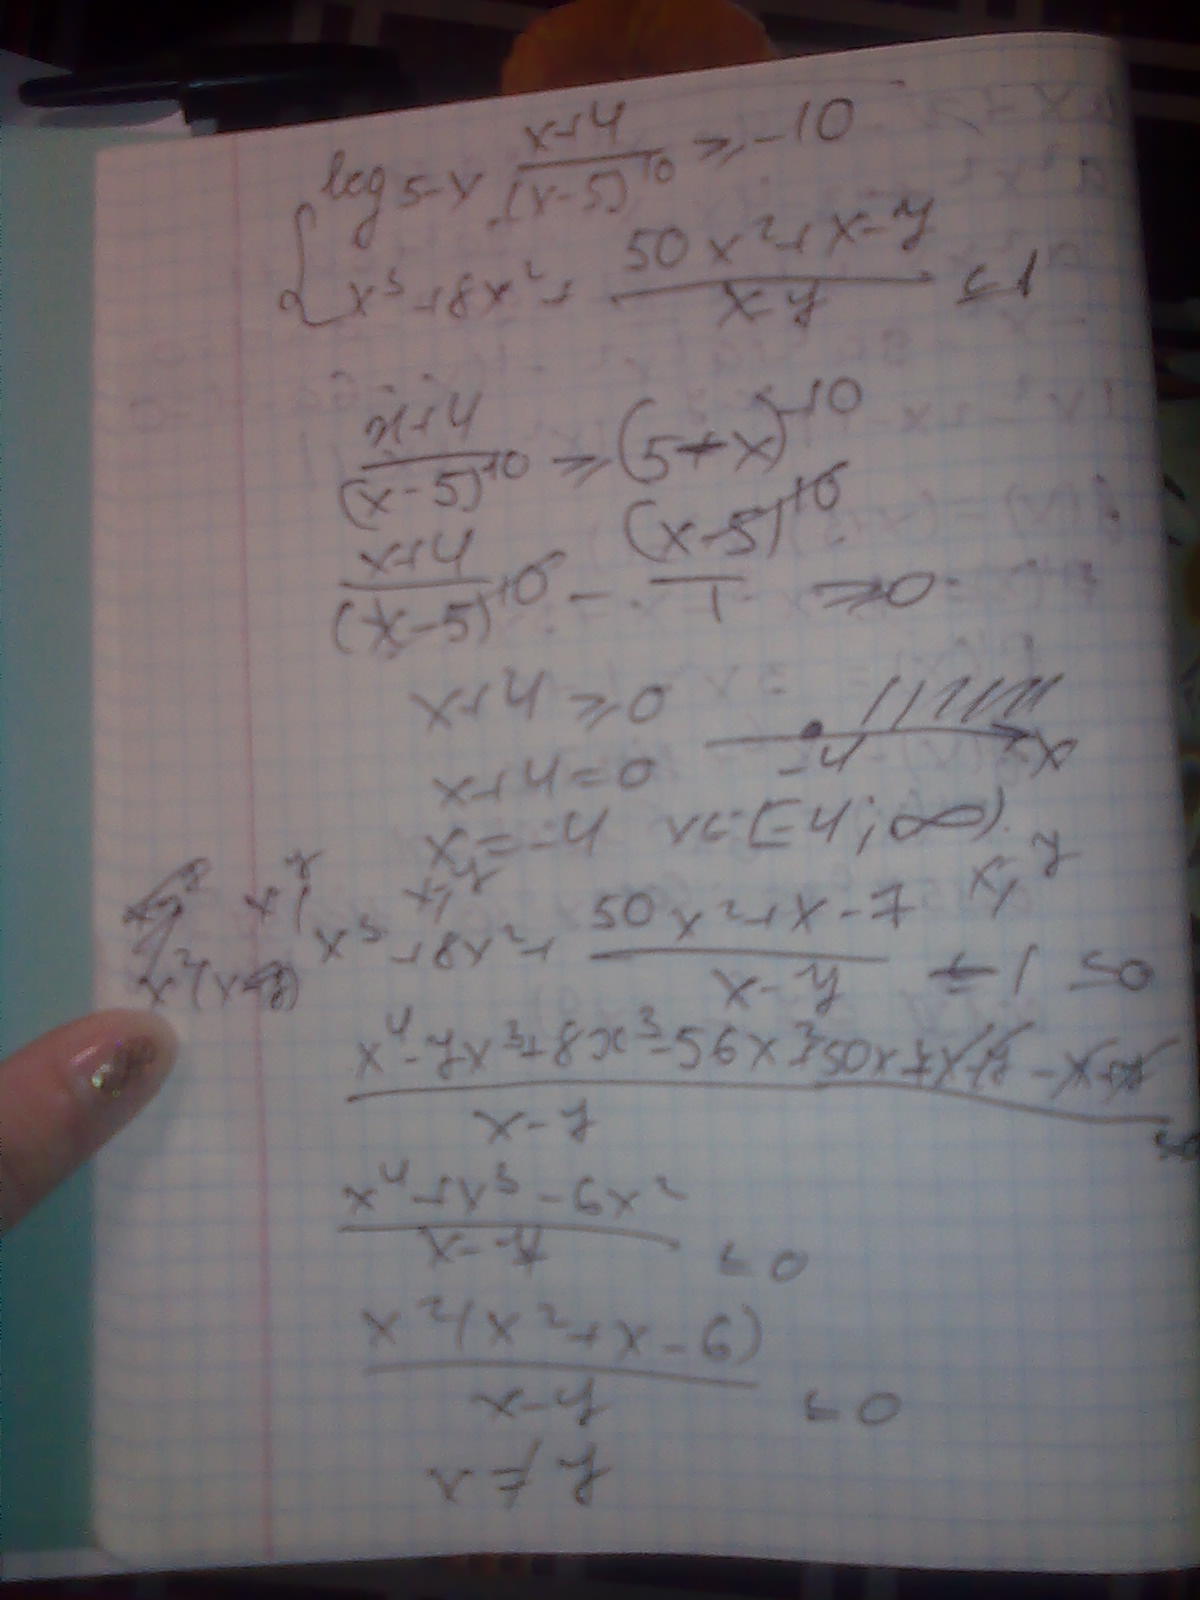 log 5-x (x+4)/(x-5)^10 ≥ -10
{ x^3+8x^2+ (50x^2+x-7)/(x-7) ≤ 1
(x+4)/(x-5)^10 ≥ (5-x)^-10
(x+4)/(x-5)^10 - (x-5)^10/1 ≥ 0
x+4 ≥ 0
x+4=0 -4 x
x=-4 x∈[-4; ∞)
x^3+8x^2+ (50x^2+x-7)/(x-7) - 1 ≤ 0
(x^4-7x^3+8x^3-56x^2+50x^2+x-7-x+7)/(x-7)
(x^4+x^3-6x^2)/(x-7) ≤ 0
x^2(x^2+x-6)/(x-7) ≤ 0
x ≠ 7